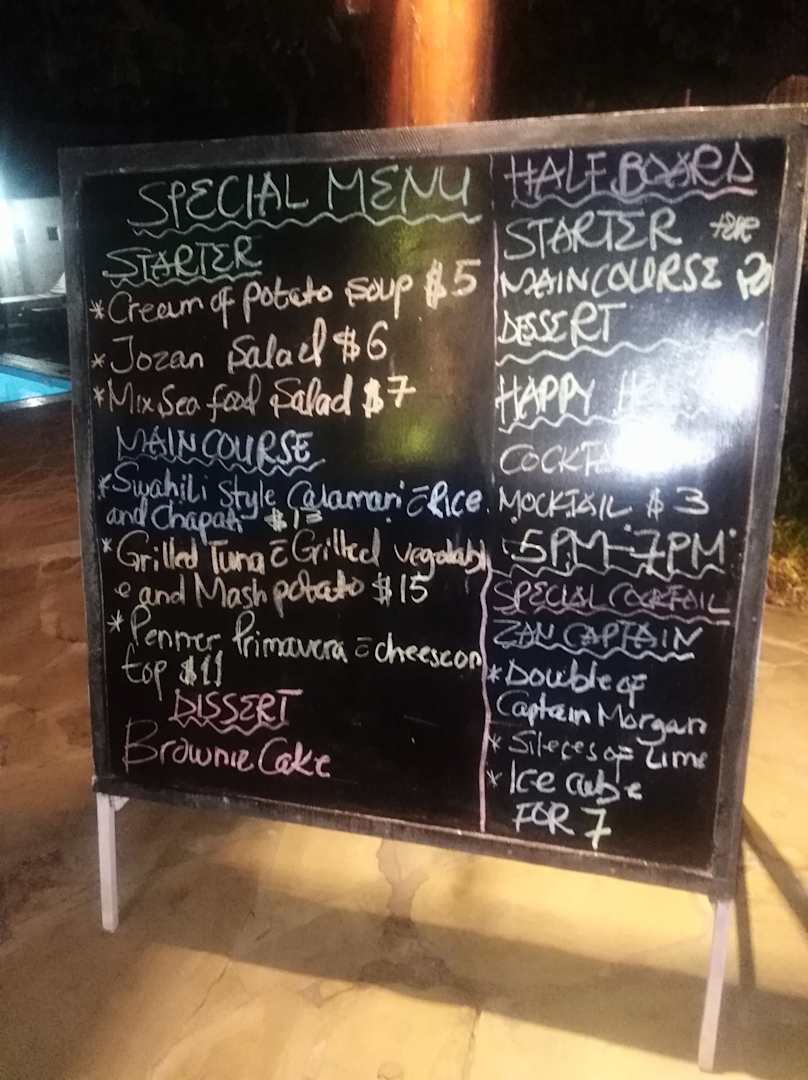 SPECIAL MENU
STARTER
* Cream of potato soup $5
* Jozan Salad $6
* Mix Sea food Salad $7
MAIN COURSE
* Swahili Style Calamari c̄ Rice
and Chapati
* Grilled Tuna c̄ Grilled vegetabl
e and Mash potato $15
* Penner Primavera c̄ cheese on
top $11
DISSERT
Brownie Cake
HALF BOARD
STARTER
MAIN COURSE
DESSERT
HAPPY
MOCKTAIL $3
5PM-7PM
SPECIAL COCKTAIL
ZAN CAPTAIN
* Double of
Captain Morgan
* Sileces of Lime
* Ice cube
FOR 7